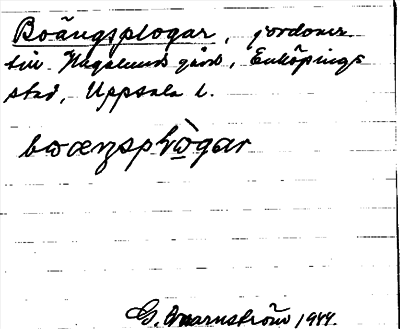 Boängsplogar, jordområ.
till Hagalunds gård, Enköpings
stad, Uppsala l.
bωæŋsplὼgar
G. Qvarnström 1944.